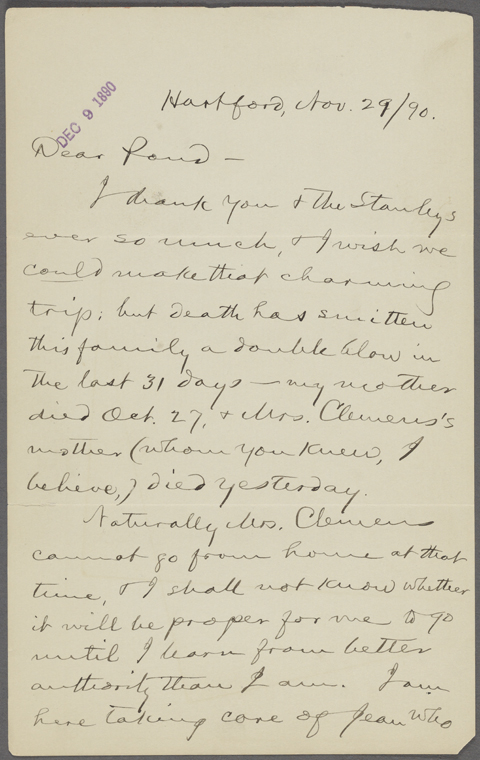 DEC 9 1890
Hartford, Nov. 29/90.
Dear Pond —
I thank you & the Stanleys
ever so much, & I wish we
could make that charming
trip; but death has smitten
this family a double blow in
the last 31 days — my mother
died Oct. 27, & Mrs. Clemens's
mother (whom you knew, I
believe,) died yesterday.
Naturally Mrs. Clemens
cannot go from home at that
time, & I shall not know whether
it will be proper for me to go
until I learn from better
authority than I am. I am
here taking care of Jean who